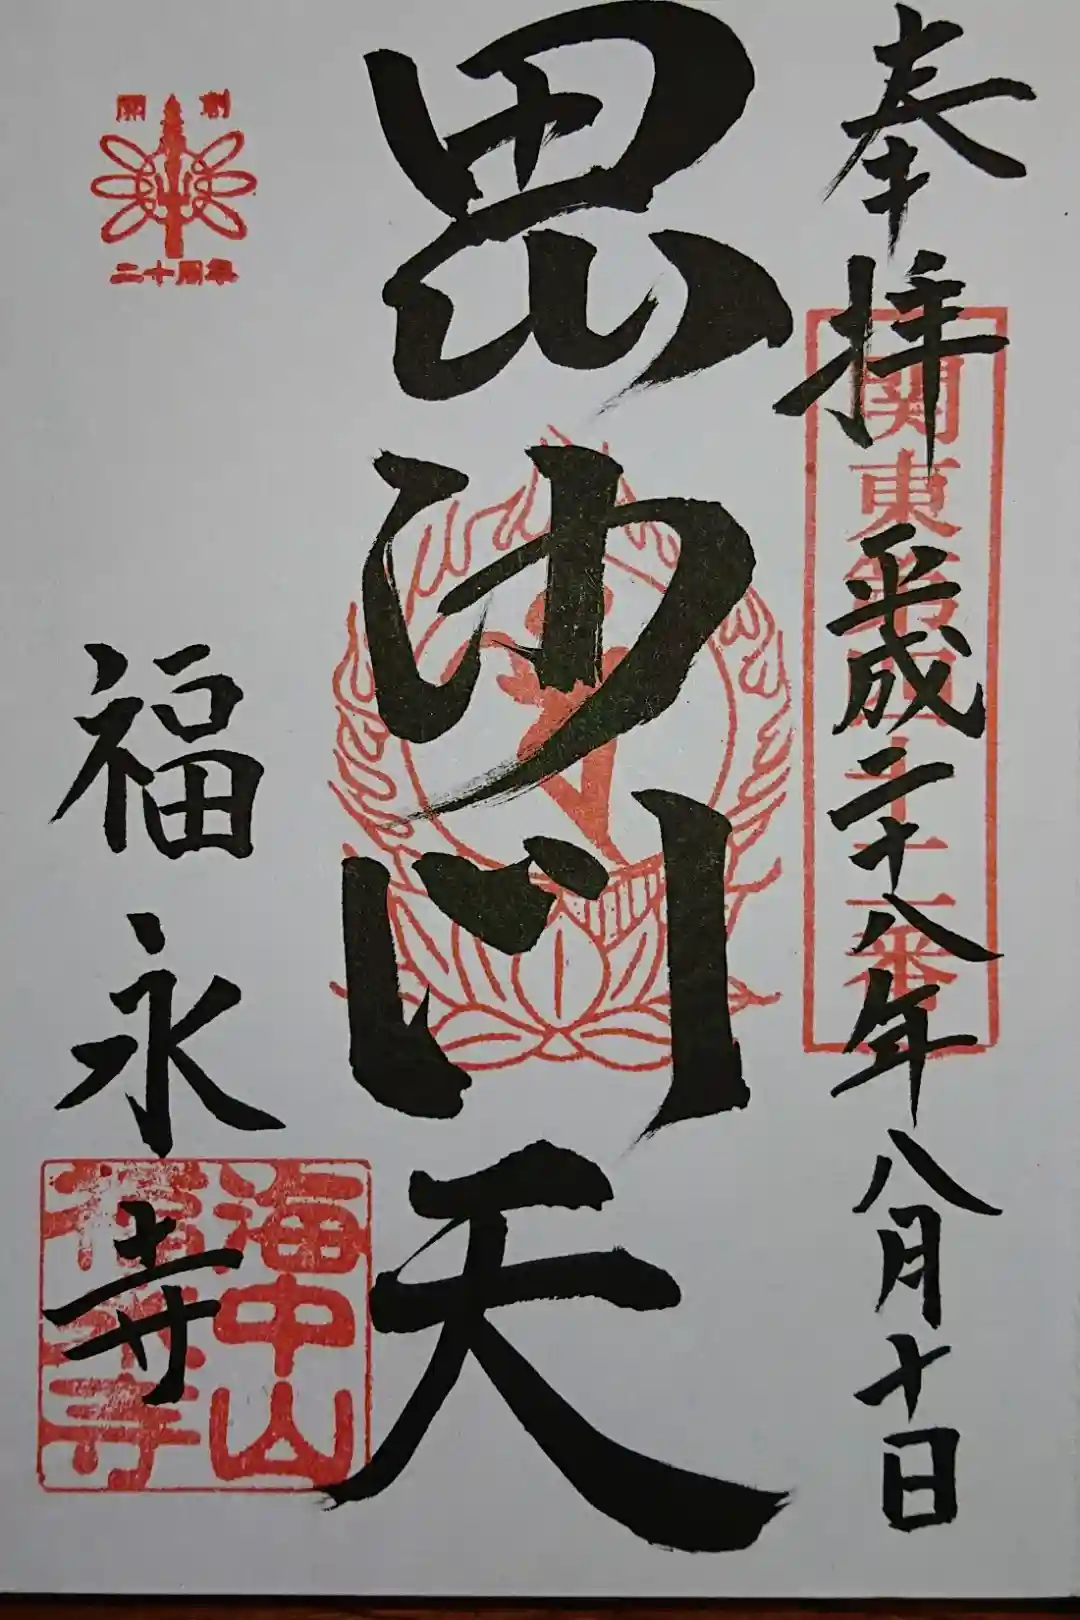 奉拝
平成二十八年八月十日
関東第四十二番
毘沙門天
福永寺
海中山
福永寺
開創
二十周年